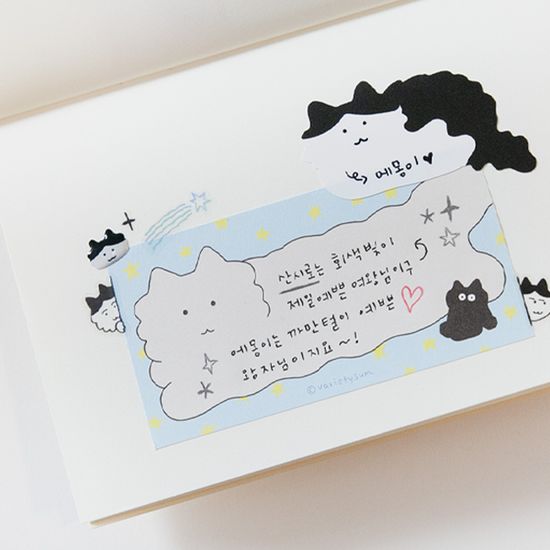 메몽이♥
산시로는 회색빛이
제일예쁜 여왕님이구
메몽이는 까만털이 예쁜
왕자님이지요~!
©varietysum